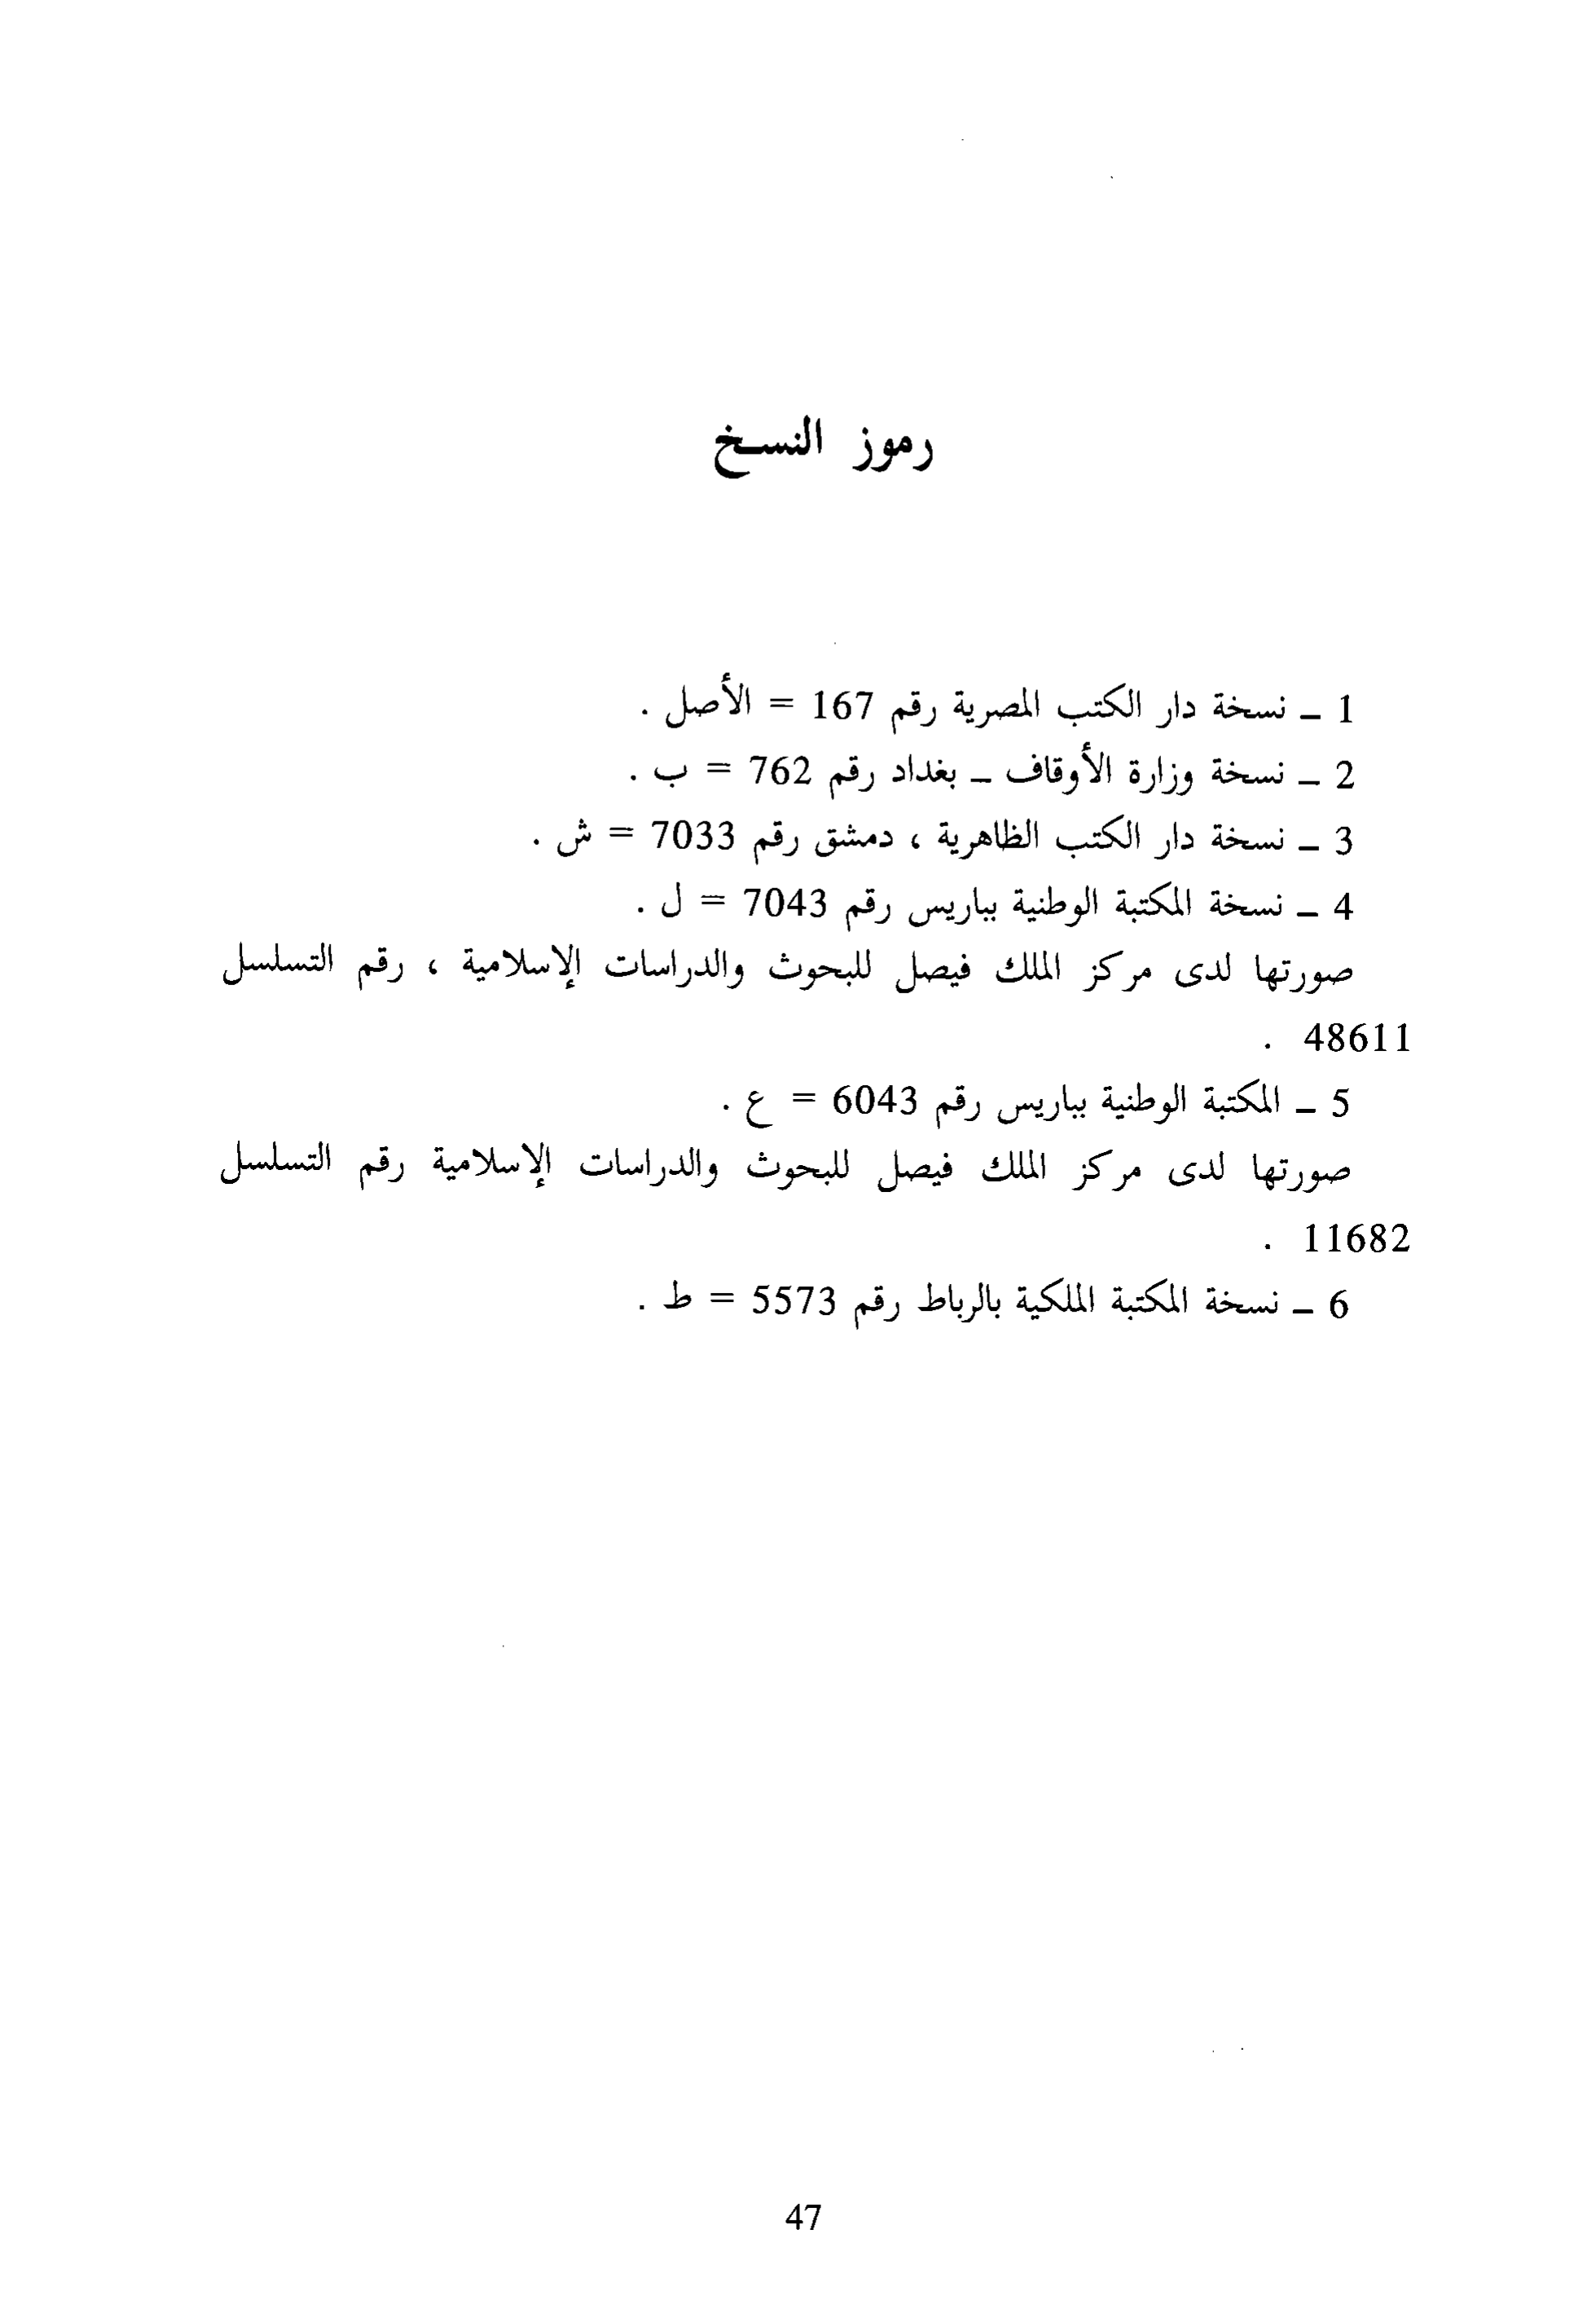 رموز النسخ
1 ــ نسخة دار الكتب المصرية رقم 167 = الأصل .
2 ــ نسخة وزارة الأوقاف ــ بغداد رقم 762 = ب .
3 ــ نسخة دار الكتب الظاهرية ، دمشق رقم 7033 = ش .
4 ــ نسخة المكتبة الوطنية بباريس رقم 7043 = ل .
صورتها لدى مركز الملك فيصل للبحوث والدراسات الإسلامية ، رقم التسلسل
48611 .
5 ــ المكتبة الوطنية بباريس رقم 6043 = ع .
صورتها لدى مركز الملك فيصل للبحوث والدراسات الإسلامية رقم التسلسل
11682 .
6 ــ نسخة المكتبة الملكية بالرباط رقم 5573 = ط .
47